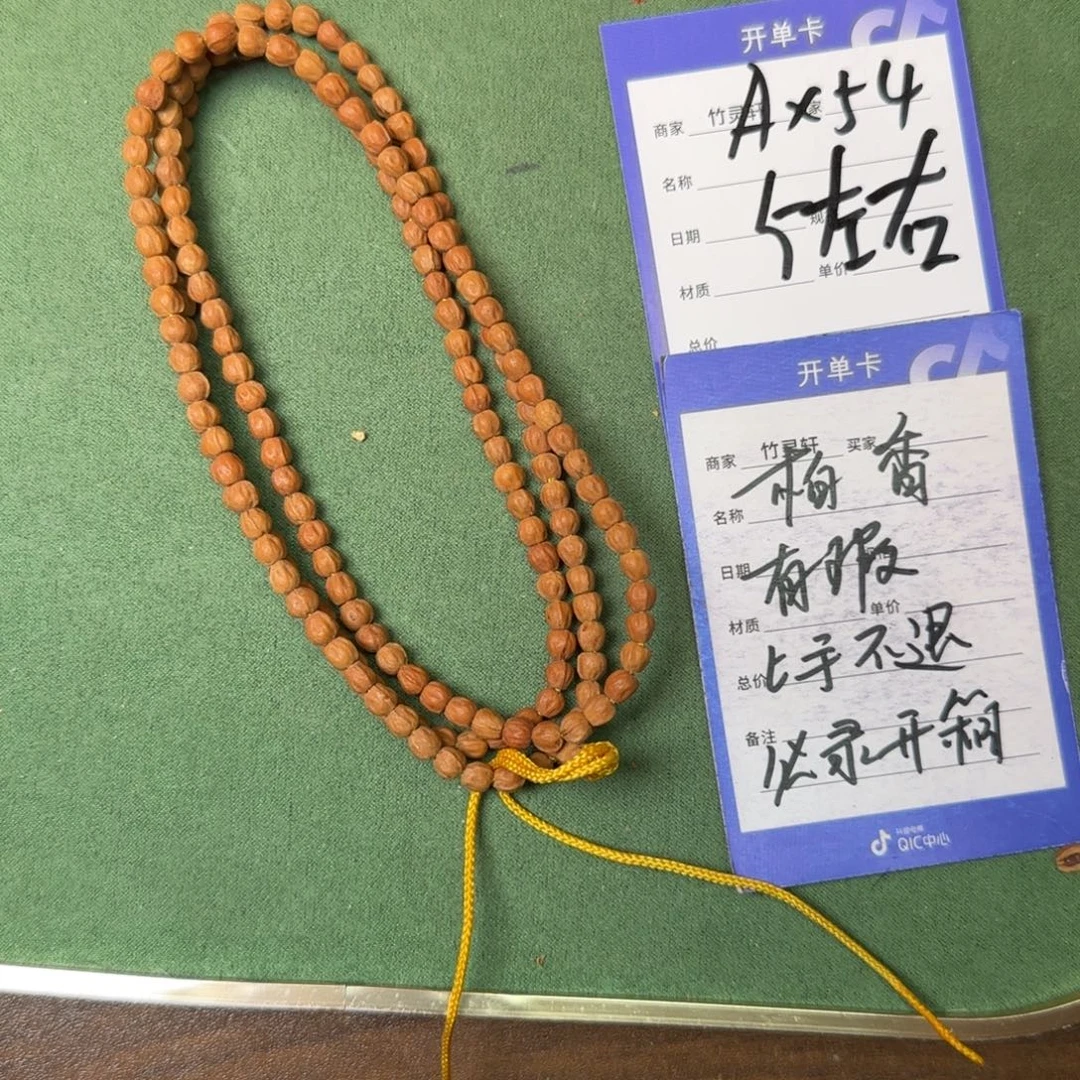 开单卡
商家 竹灵轩 家
A x 54
名称
5左右
日期 规
材质 单价
总价
开单卡
商家 竹灵轩 买家
柏香
名称
日期 有瑕
材质 单价
总价 上手不退
备注 必录开箱
抖音电商
QIC中心